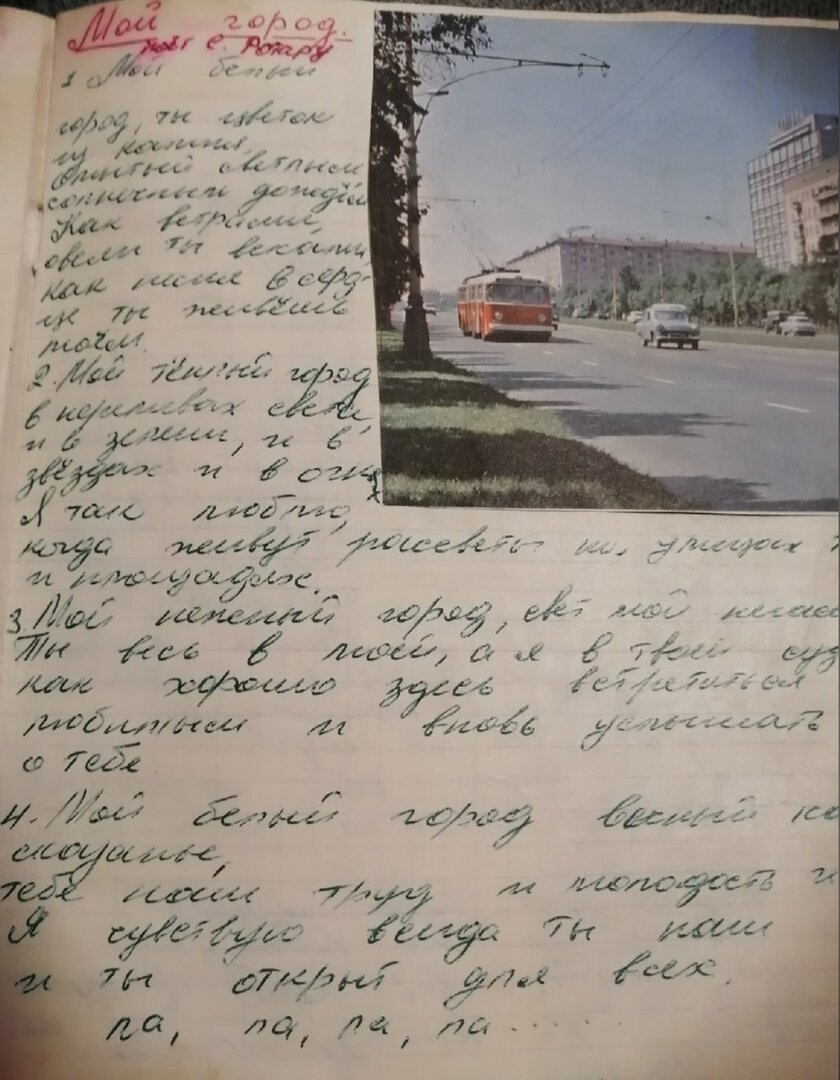 Мой город.
поёт С. Ротару
1 Мой белый
город, ты цветок
из камня,
Омытый светлым
солнечным дождём
Как ветрами,
овеян ты веками,
как песня в серд-
це ты живёшь
моём.
2. Мой тёплый город
в переливах света
и в зелени, и в
звёздах и в огнях
Я так люблю,
когда живут рассветы на улицах
и площадях.
3 Мой нежный город, свет мой
Ты весь в моей, а я в твоей
как хорошо здесь встретиться
любимым и вновь услышать
о тебе
4. Мой белый город вечный
сказанье,
тебе наш труд и молодость и
Я чувствую всегда ты наш
и ты открыт для всех.
ла, ла, ла, ла.....